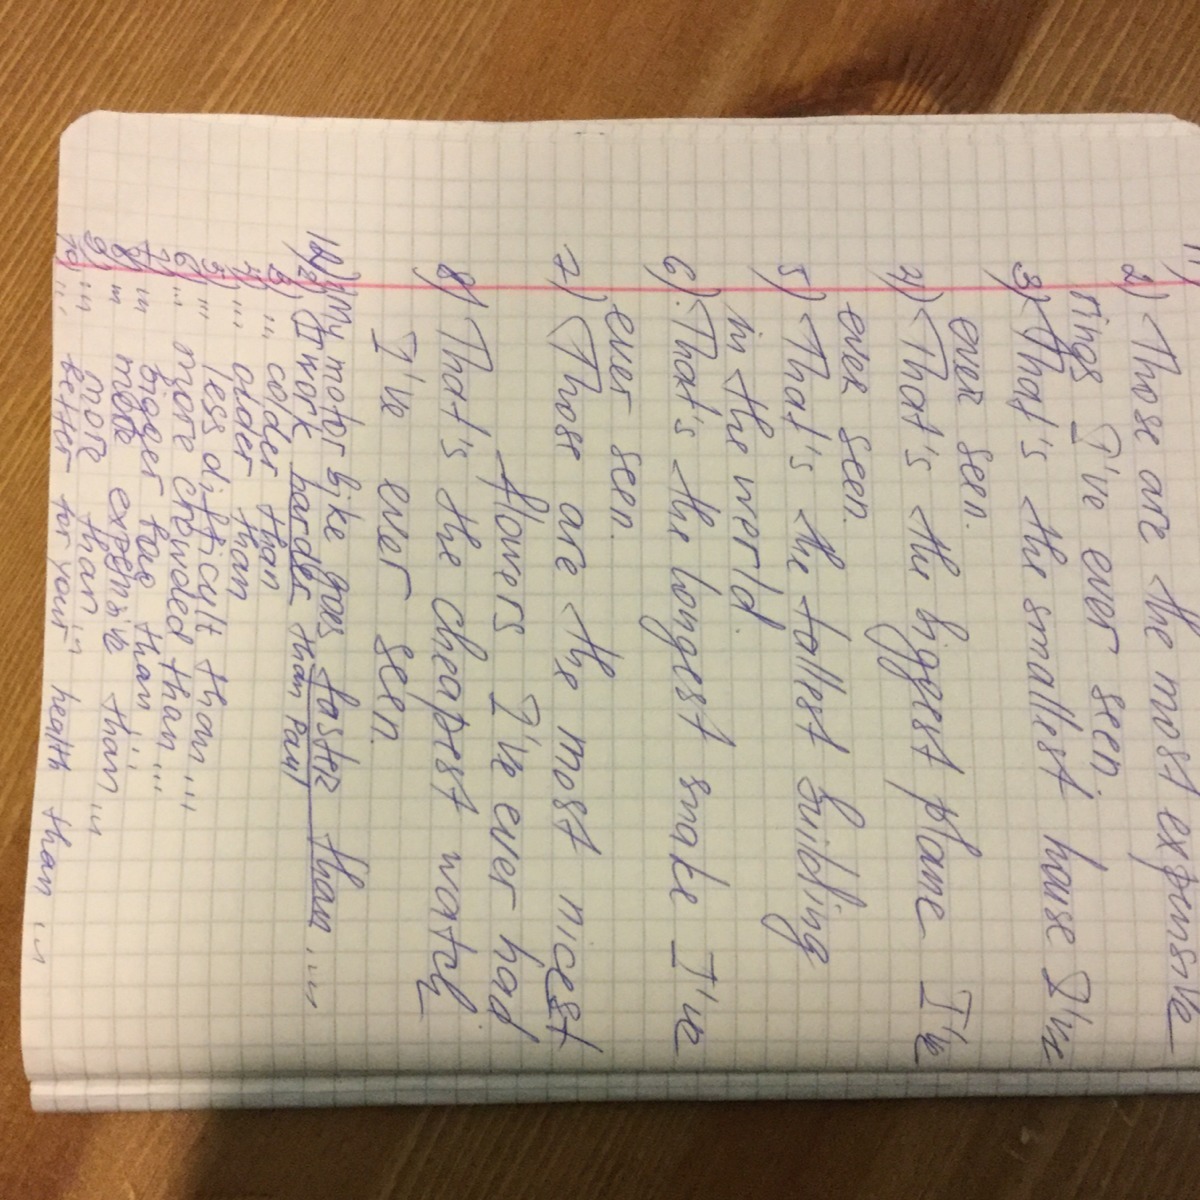 2) Those are the most expensive
rings I've ever seen.
3) That's the smallest house I've
ever seen.
4) That's the biggest plane I've
ever seen.
5) That's the tallest building
in the world.
6) That's the longest snake I've
ever seen.
7) Those are the most nicest
flowers I've ever had
8) That's the cheapest watch
I've ever seen.
1) My motor bike goes faster than ...
2) I work harder than Paul
3) ... colder than
4) ... older than
5) ... less difficult than ...
6) ... more crowded than ...
7) ... bigger than
8) ... more expensive than ...
9) ... more than ...
10) ... better for your health than ...